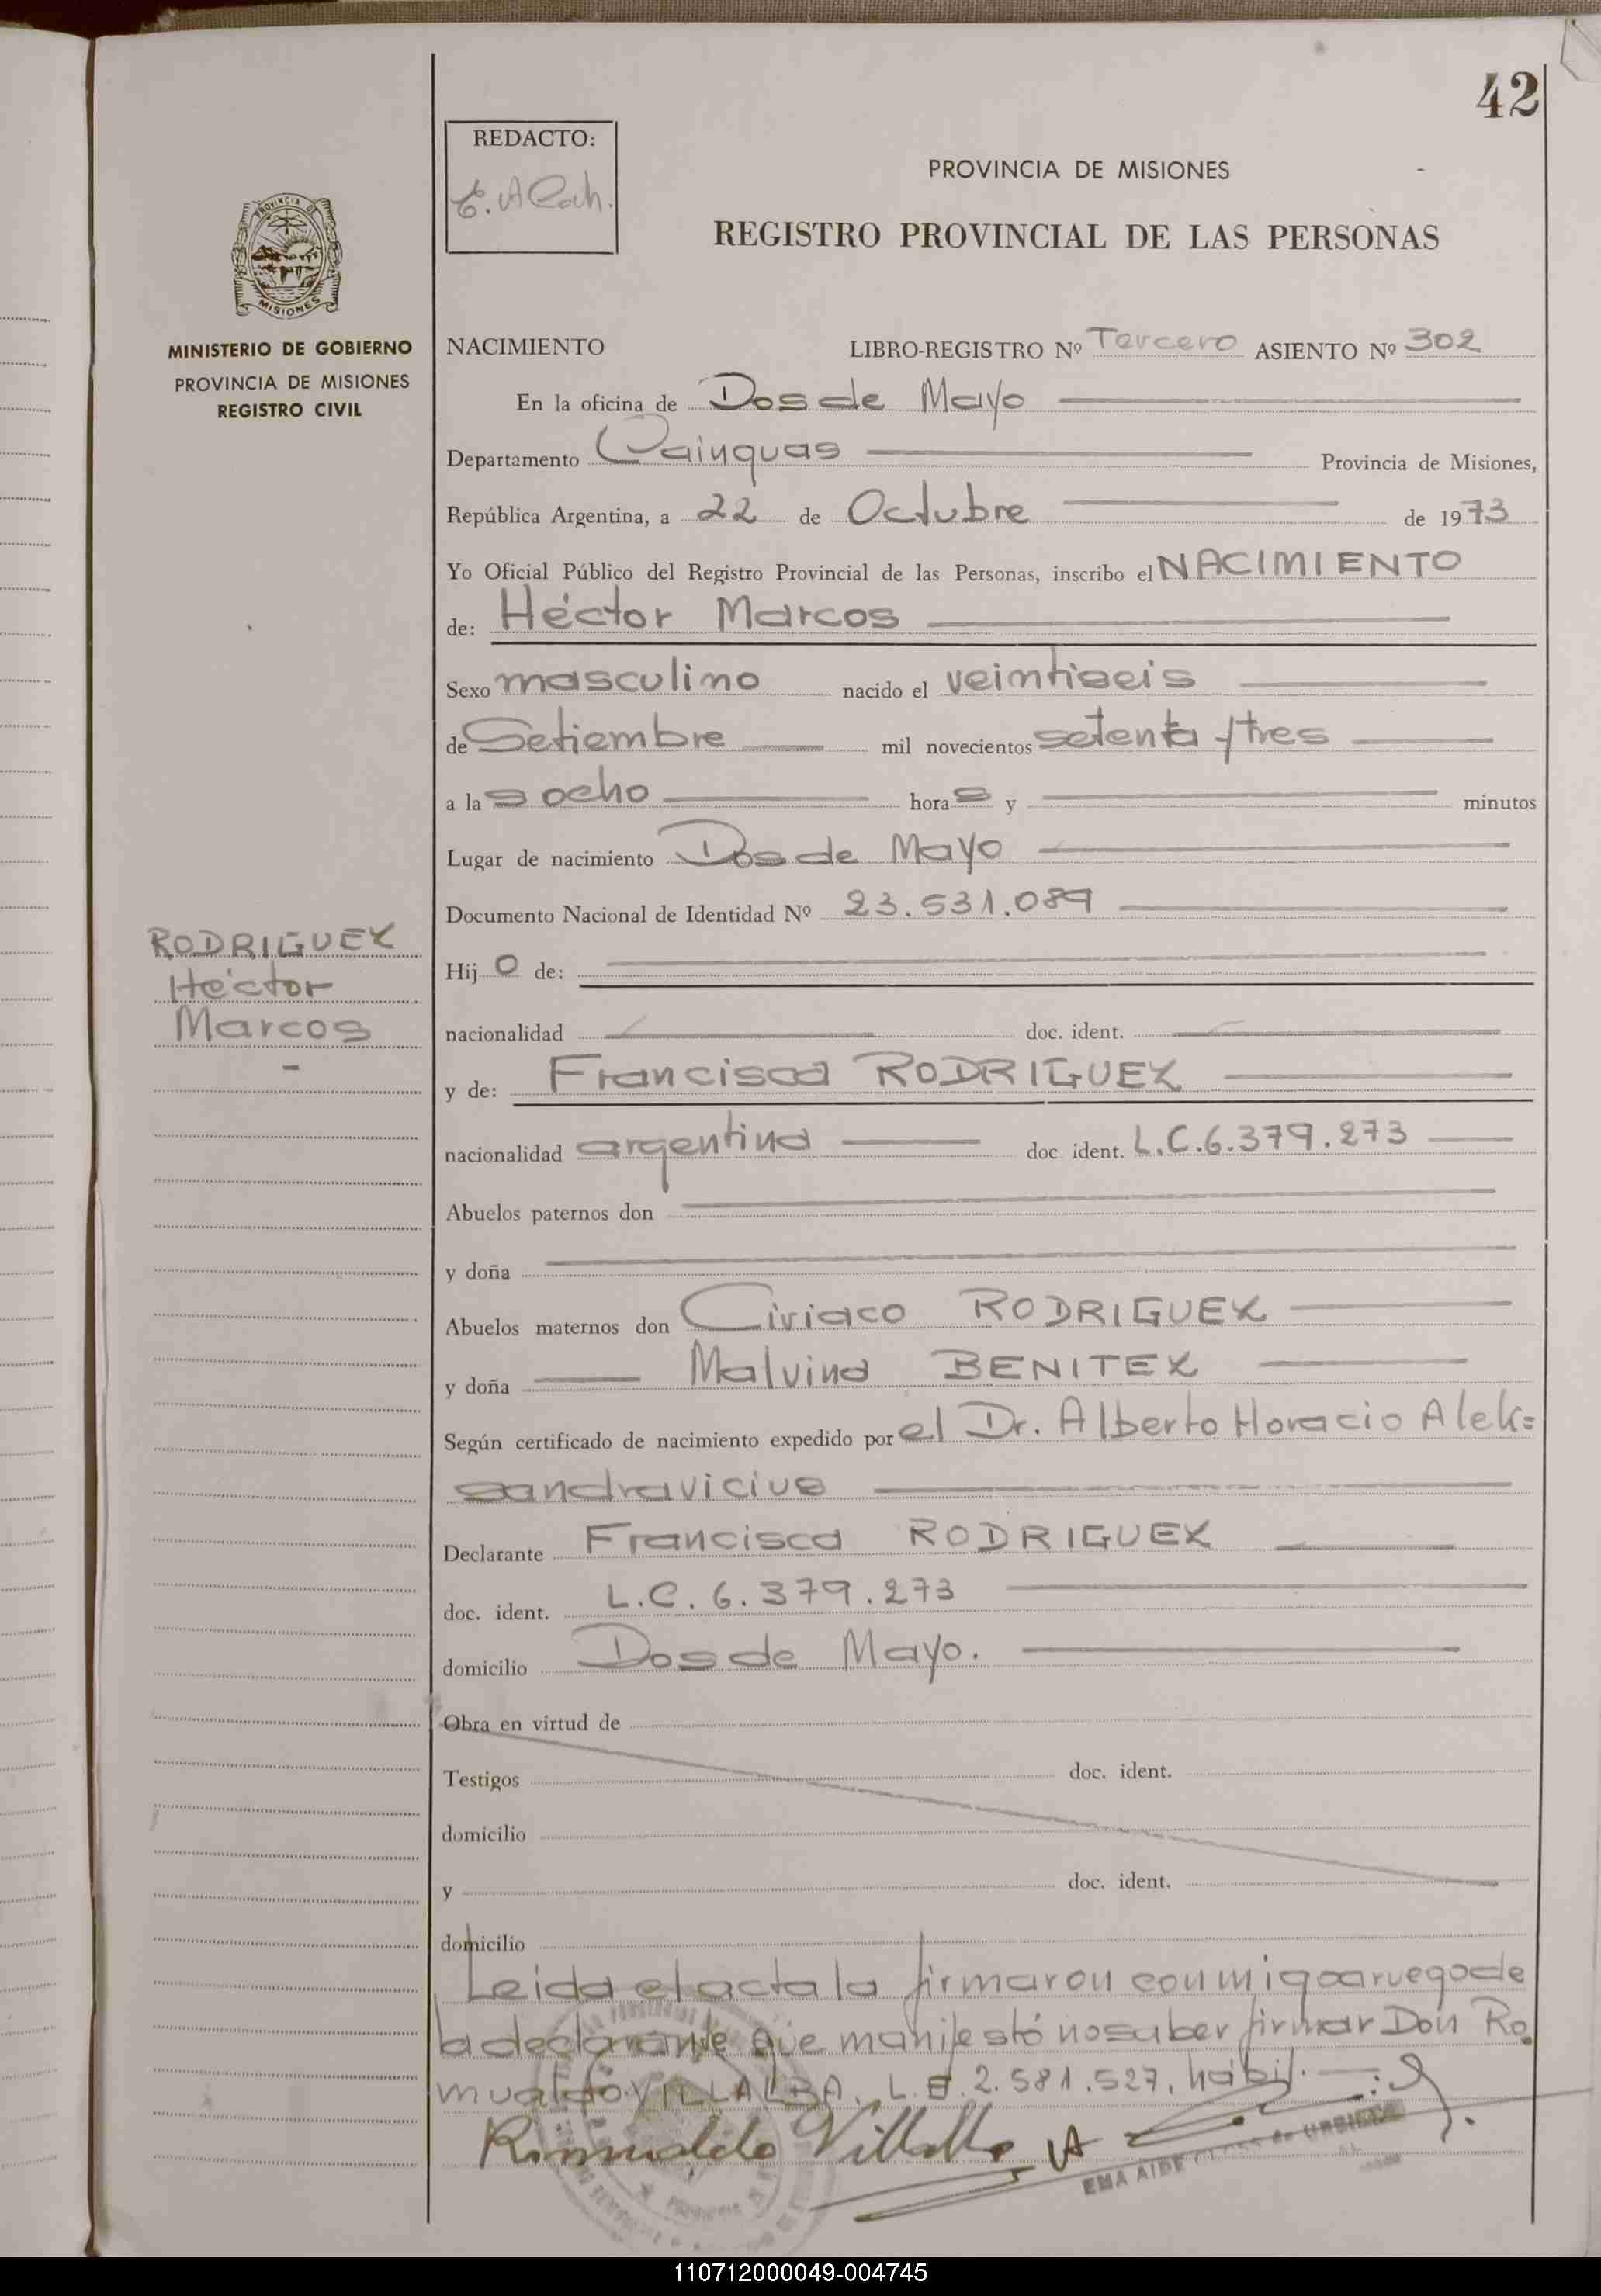 42
REDACTO:
PROVINCIA DE MISIONES
REGISTRO PROVINCIAL DE LAS PERSONAS
PROVINCIA DE
MISIONES
MINISTERIO DE GOBIERNO
PROVINCIA DE MISIONES
REGISTRO CIVIL
NACIMIENTO LIBRO-REGISTRO Nº Tercero ASIENTO Nº 302
En la oficina de Dos de Mayo
Departamento Cainguas Provincia de Misiones,
República Argentina, a 22 de Octubre de 1973
Yo Oficial Público del Registro Provincial de las Personas, inscribo el NACIMIENTO
de: Héctor Marcos
Sexo masculino nacido el veintiseis
de Setiembre mil novecientos setenta y tres
a las ocho horas y minutos
Lugar de nacimiento Dos de Mayo
Documento Nacional de Identidad Nº 23.531.089
RODRIGUEZ
Héctor
Marcos
Hijo de:
nacionalidad doc. ident.
y de: Francisca RODRIGUEZ
nacionalidad argentina doc ident. L.C.6.379.273
Abuelos paternos don
y doña
Abuelos maternos don Ciriaco RODRIGUEZ
y doña Malvina BENITEZ
Según certificado de nacimiento expedido por el Dr. Alberto Horacio Alek=
sandravicius
Declarante Francisca RODRIGUEZ
doc. ident. L.C. 6.379.273
domicilio Dos de Mayo.
Obra en virtud de
Testigos doc. ident.
domicilio
y doc. ident.
domicilio
Leida el acta la firmaron conmigo a ruego de
la declarante que manifestó no saber firmar Don Ro
mualdo VILLALBA, L.E. 2.581.527, hábil.
Romualdo Villalba
EMA AIDE
110712000049-004745